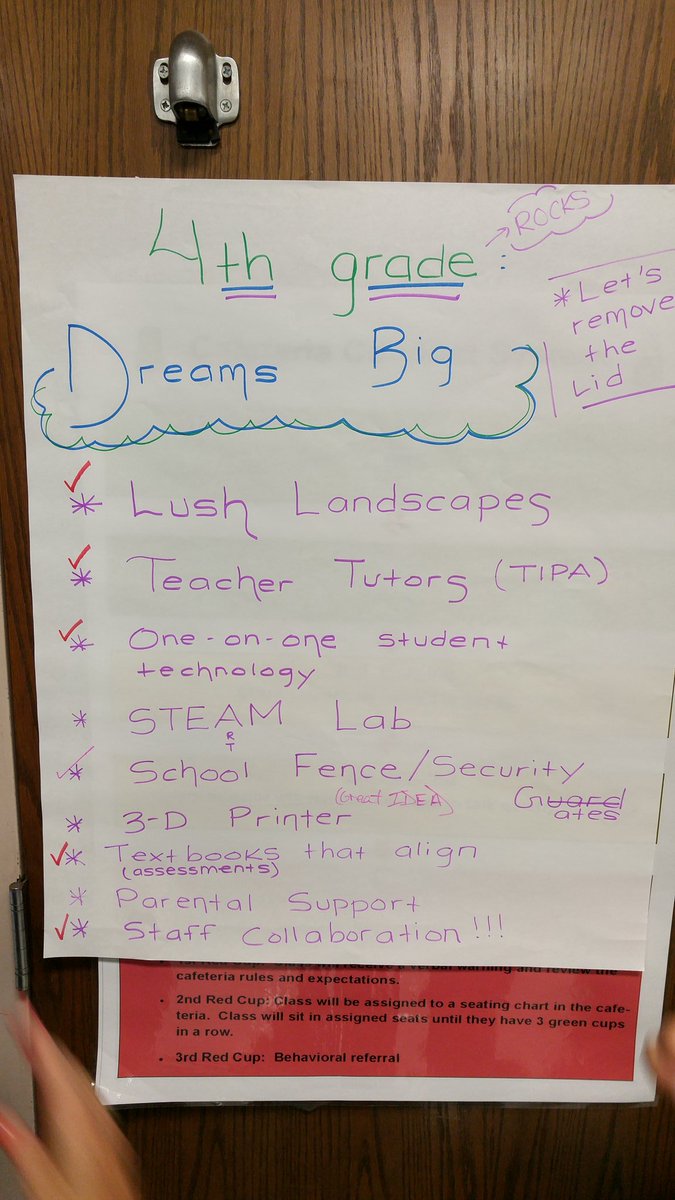 ROCKS
4th grade:
* Let's
remove
the
Lid
Dreams Big
* Lush Landscapes
* Teacher Tutors (TIPA)
* One-on-one student
technology
* STEAM Lab
R
T
* School Fence/Security
(Great IDEA) Guard
ates
* 3-D Printer
* Textbooks that align
(assessments)
* Parental Support
* Staff Collaboration!!!
warning and review the
cafeteria rules and expectations.
• 2nd Red Cup: Class will be assigned to a seating chart in the cafe-
teria. Class will sit in assigned seats until they have 3 green cups
in a row.
• 3rd Red Cup: Behavioral referral